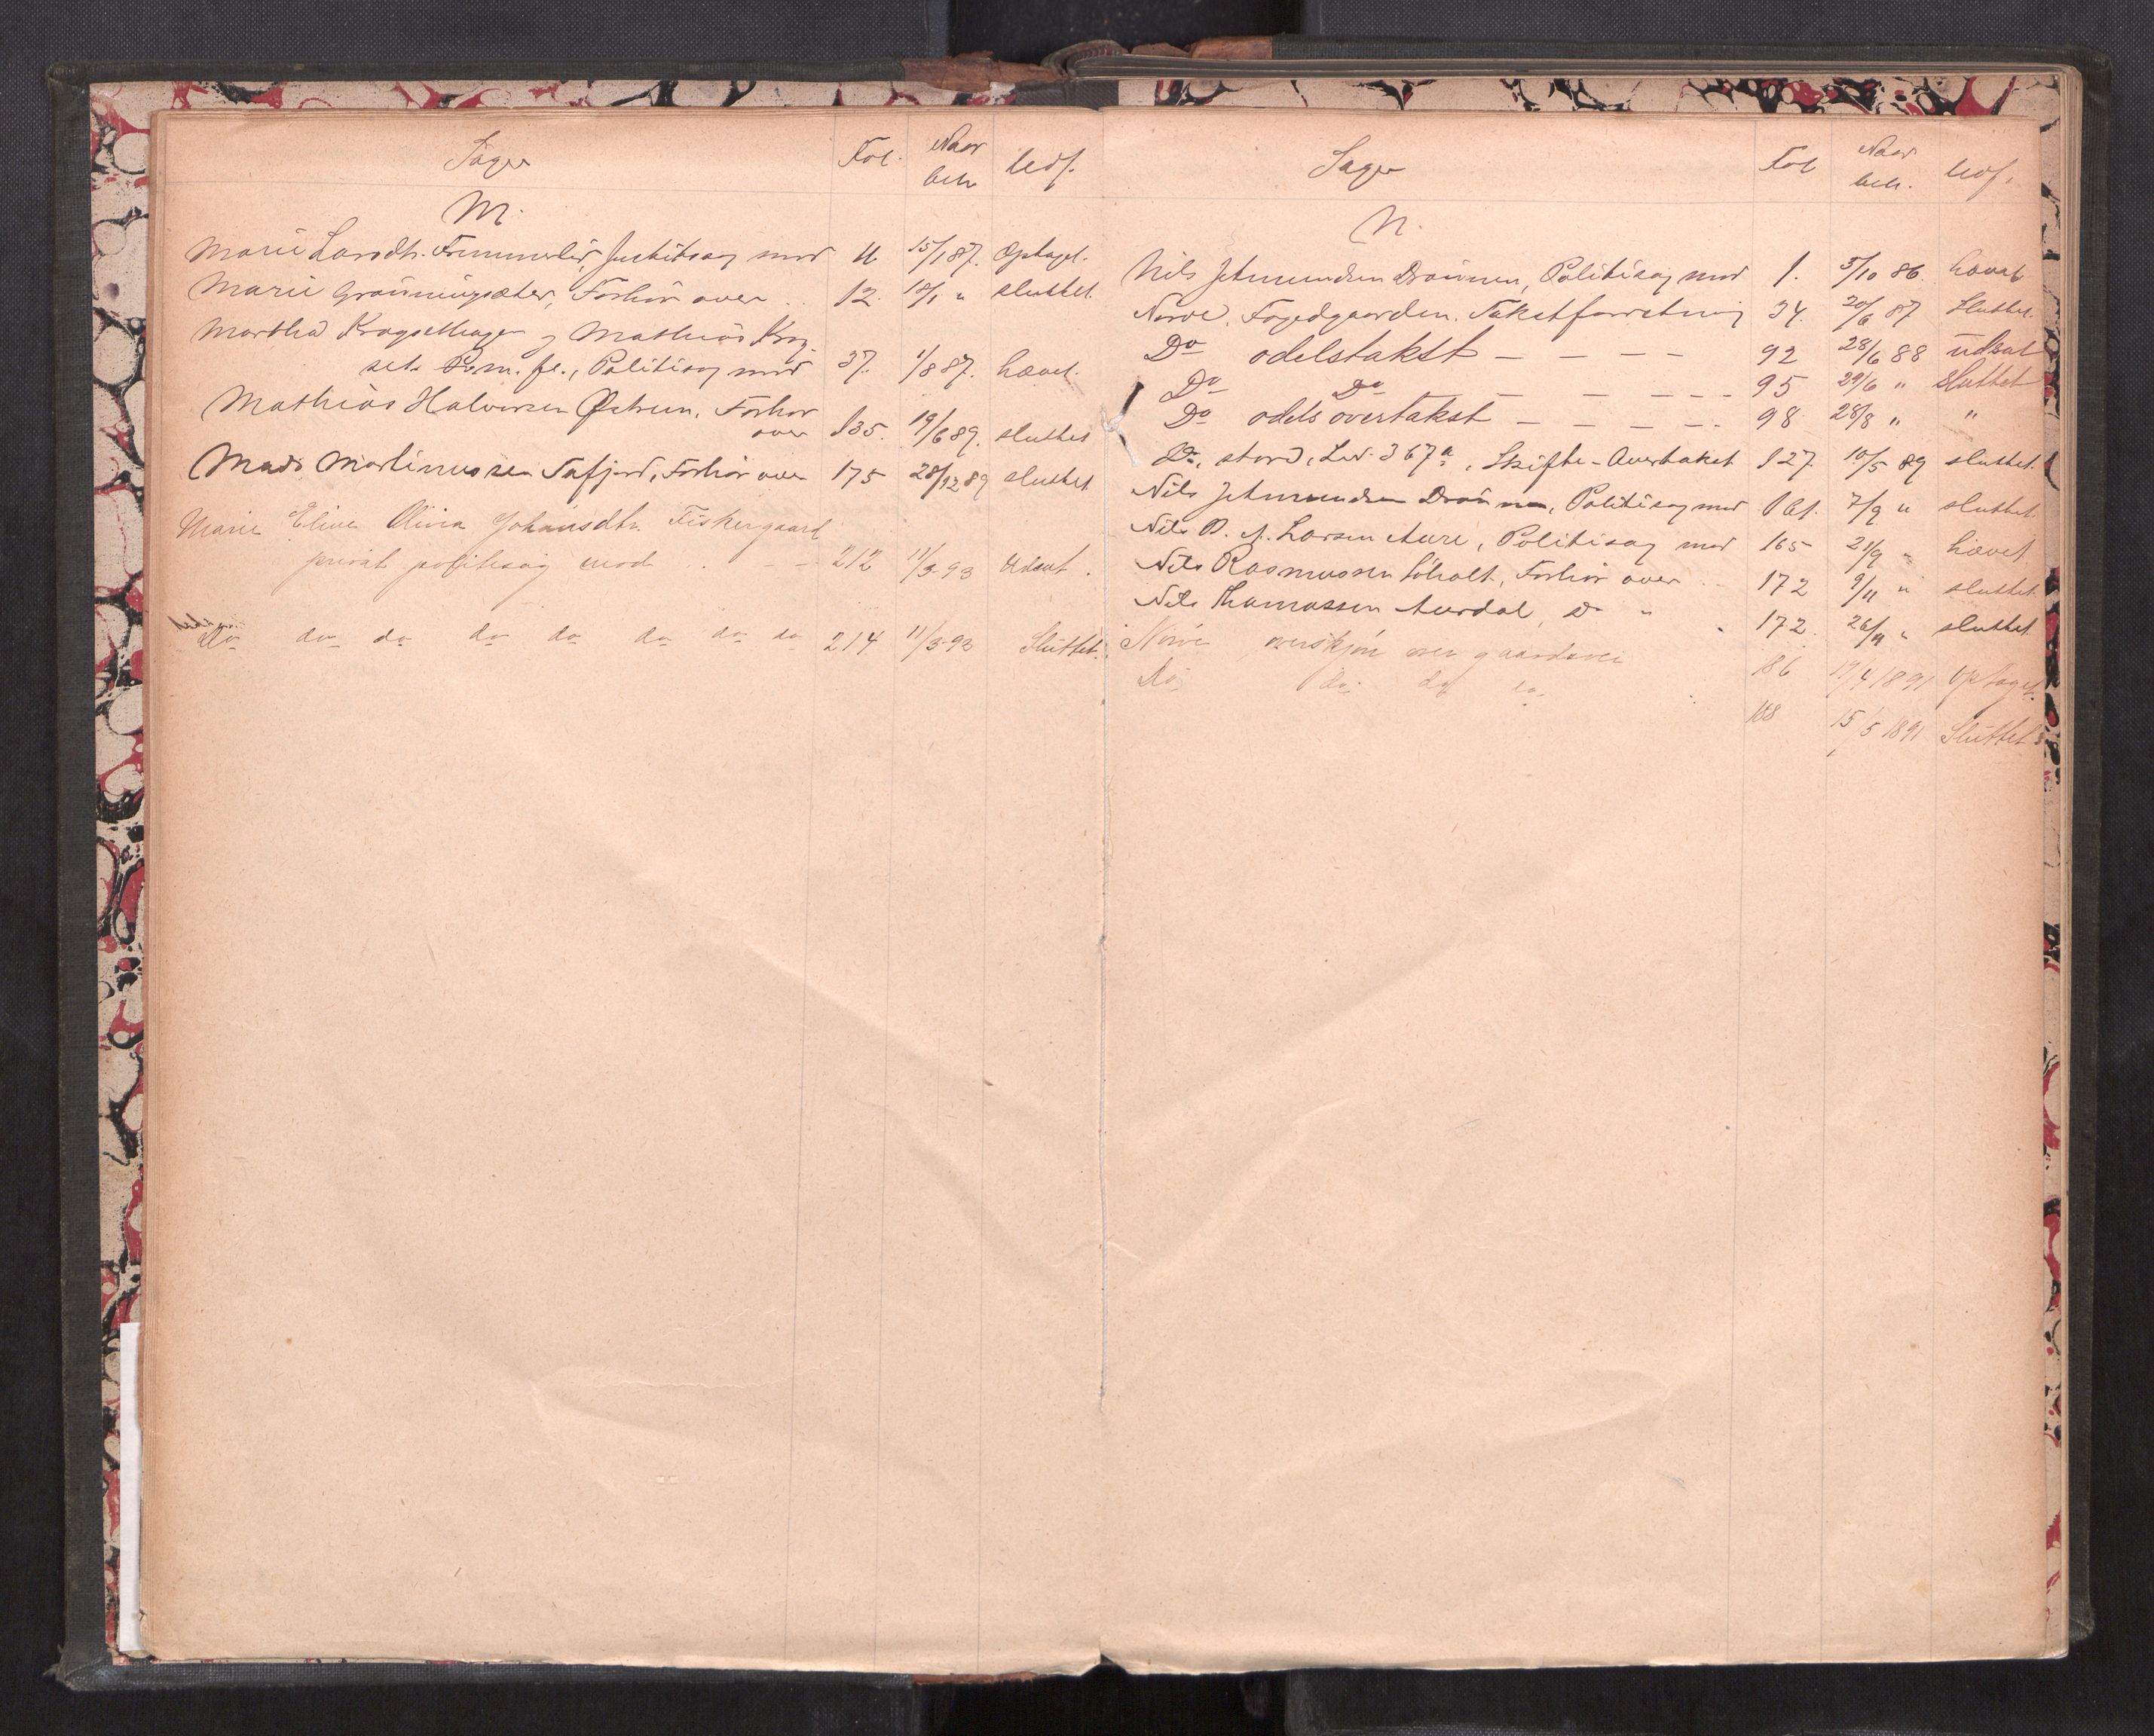 Sager Fol. Naar beh. Udf.
M.
Marie Larsdtr. Fremmerlid, Justitssag mod 11 15/1 87. Optaget.
Marie Grönningsæter, Forhör over 12. 18/1 " sluttet.
Martha Krogsethagen og Mathias Krog-
set m. fl., Politisag mod 37. 1/8 87. hævet.
Mathias Halvorsen Østrem, Forhör
over 135. 19/6 89. sluttet
Mads Martinussen Tafjord, Forhör over 175 28/12 89 sluttet
Marie Eline Olivia Johansdtr. Fiskergaard
privat politisag mod 212 11/3 93 Udsat.
Do do do do do do do do 214 11/3-93 Sluttet.
Sager Fol Naar beh. Udf.
N.
Nils Jetmundsen Drönnen, Politisag mod 1. 5/10 86. hævet
Nørve, Fogedgaarden. Takstforretning 34. 20/6 87 Sluttet.
Do odelstakst — — — — 92 28/6 88 udsat
Do Do — — — — 95 29/6 " Sluttet
Do odelsovertakst — — — — 98 28/8 " "
Do, stord, Lnr. 367a, Skifte-Overtakst 127. 10/5 89 sluttet.
Nils Jetmundsen Drönnen, Politisag mod 161. 7/9 " sluttet.
Nils P. A. Larsen Aure, Politisag mod 165 21/9 " hævet
Nils Rasmussen Söholt, Forhör over 172 9/11 " sluttet
Nils Thomassen Aurdal, Do " 172. 26/11 " sluttet
Nörve overskjön over gaardsvei 186 19/4 1891 Optaget.
Do do. do do 188 15/5 1891 Sluttet